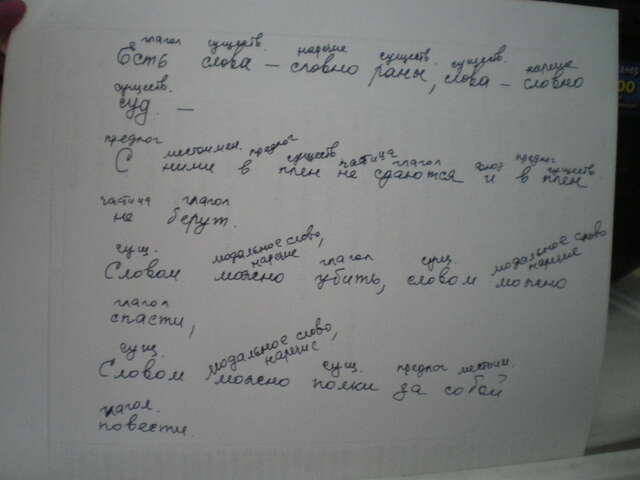 глагол существ. наречие существ. существ. наречие
Есть слова – словно раны, слова – словно
существ.
суд. –
предлог местоимен. предлог существ. частица глагол союз предлог существ.
С ними в плен не сдаются и в плен
частица глагол
не берут.
сущ. модальное слово, наречие глагол сущ. модальное слово наречие
Словом можно убить, словом можно
глагол
спасти,
сущ. модальное слово, наречие сущ. предлог местоим.
Словом можно полки за собой
глагол.
повести.
00